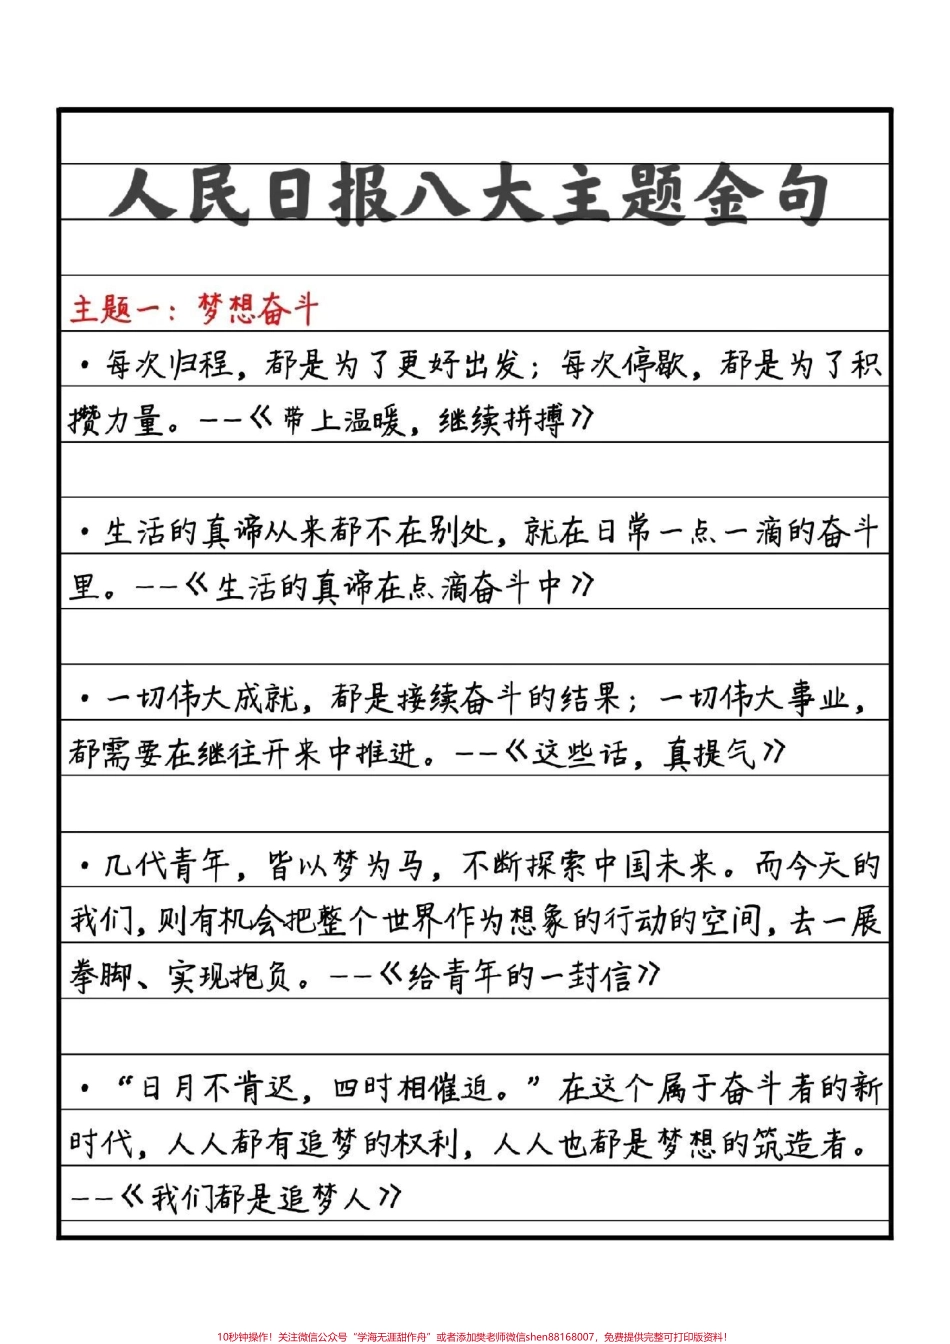 人民日报八大主题金句
主题一：梦想奋斗
·每次归程，都是为了更好出发；每次停歇，都是为了积
攒力量。--《带上温暖，继续拼搏》
·生活的真谛从来都不在别处，就在日常一点一滴的奋斗
里。--《生活的真谛在点滴奋斗中》
·一切伟大成就，都是接续奋斗的结果；一切伟大事业，
都需要在继往开来中推进。--《这些话，真提气》
·几代青年，皆以梦为马，不断探索中国未来。而今天的
我们，则有机会把整个世界作为想象的行动的空间，去一展
拳脚、实现抱负。--《给青年的一封信》
·“日月不肯迟，四时相催迫。”在这个属于奋斗者的新
时代，人人都有追梦的权利，人人也都是梦想的筑造者。
--《我们都是追梦人》
10秒钟操作！关注微信公众号“学海无涯甜作舟”或者添加樊老师微信shen88168007，免费提供完整可打印版资料！